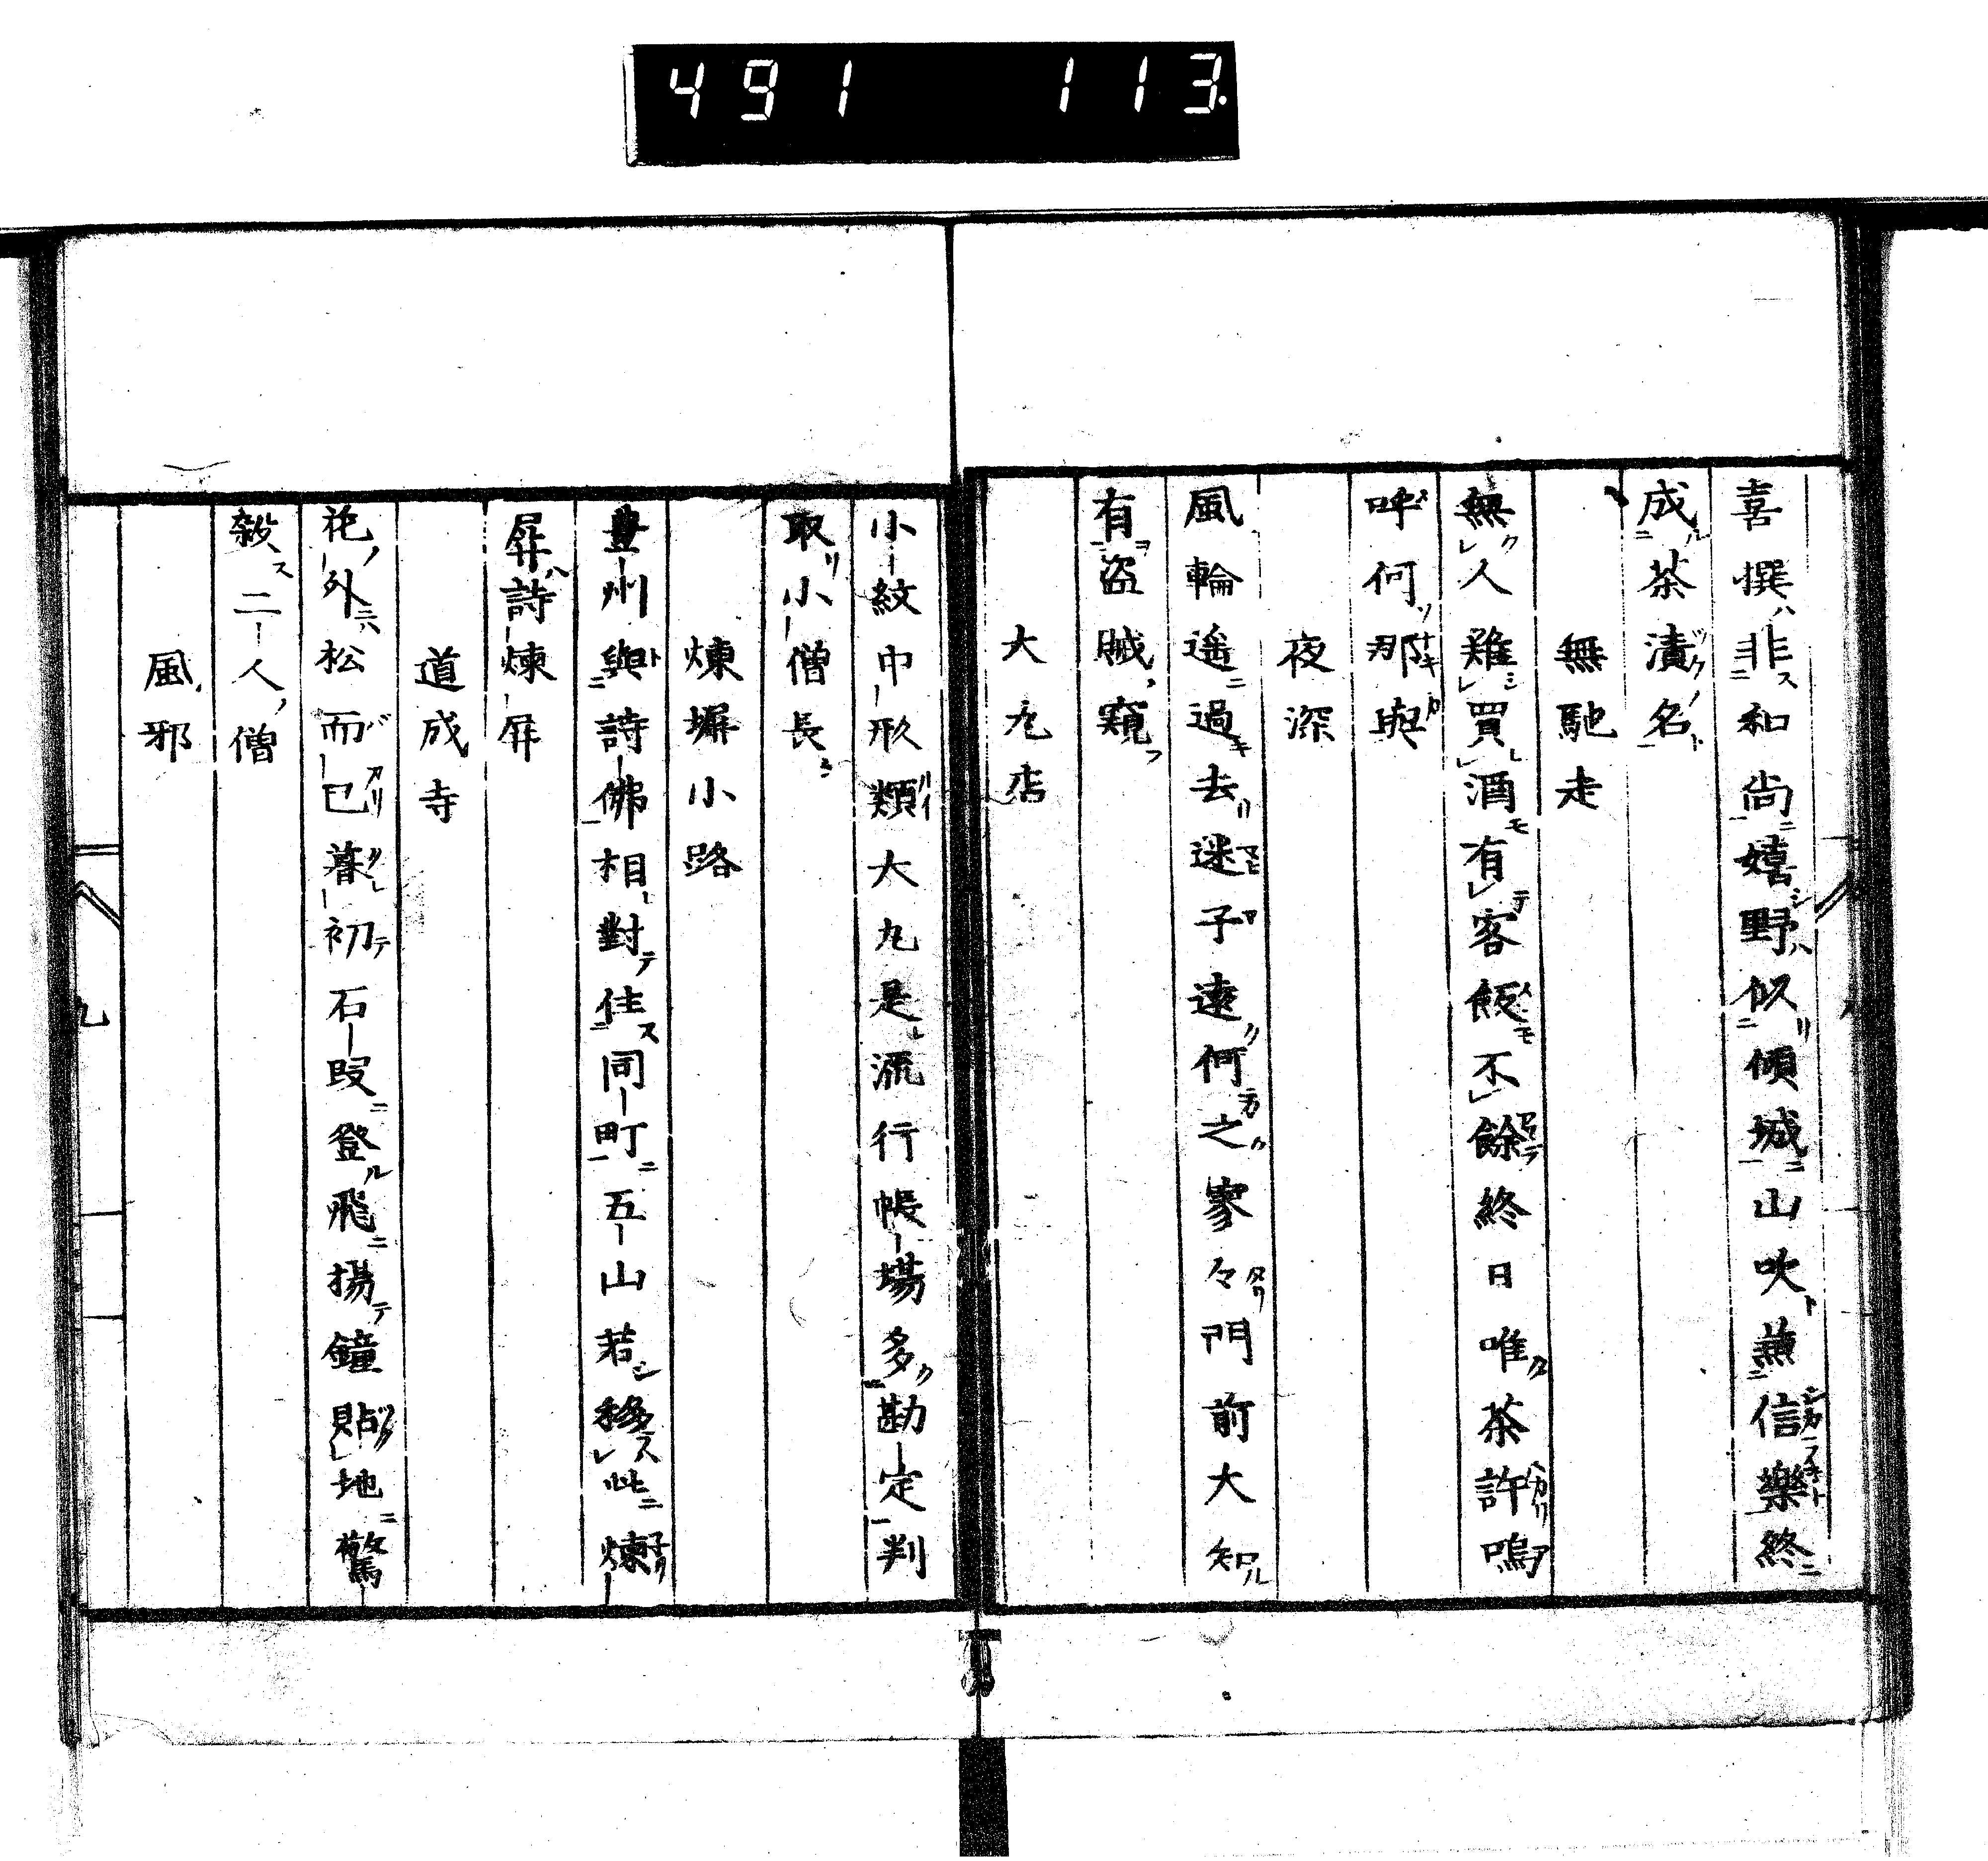 491 113.
喜撰非和尚嬉野似傾城山吹兼信樂終
成茶漬名
無馳走
無人難買酒有客飯不餘終日唯茶許嗚
呼何那與
夜深
風輪遥過去迷子遠何之家々門前大知
有盗賊窺
大丸店
小紋巾形類大丸是流行帳場多勘定判
取小僧長
煉塀小路
豊州與詩佛相對住同町五山若移此煉
屏詩煉屏
道成寺
花外松而已暮初石段登飛揚鐘貼地驚
殺二人僧
風邪
九